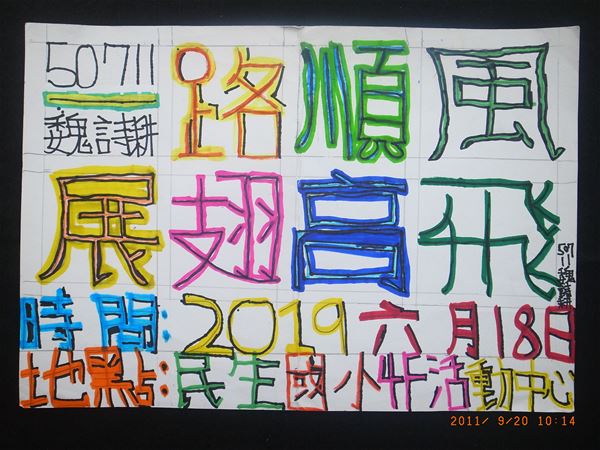 50711
一路順風
魏詩耕
展翅高飛
50711魏詩耕
時間:2019六月18日
地點:民生國小4F活動中心
2011/ 9/20 10:14